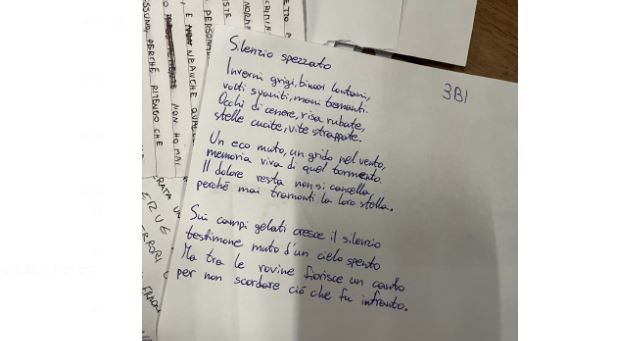 Silenzio spezzato
3BI
Inverni grigi, binari lontani,
volti svaniti, mani tremanti.
Occhi di cenere, risa rubate,
stelle cucite, vite strappate.
Un eco muto, un grido nel vento,
memoria viva di quel tormento.
Il dolore resta non si cancella,
perché mai tramonti la loro stella.
Sui campi gelati cresce il silenzio
testimone muto d'un cielo spento
Ma tra le rovine fiorisce un canto
per non scordare ciò che fu infranto.
PERCHÉ RITENGO CHE
NON HO MAI
E NON NEANCHE
PERSON